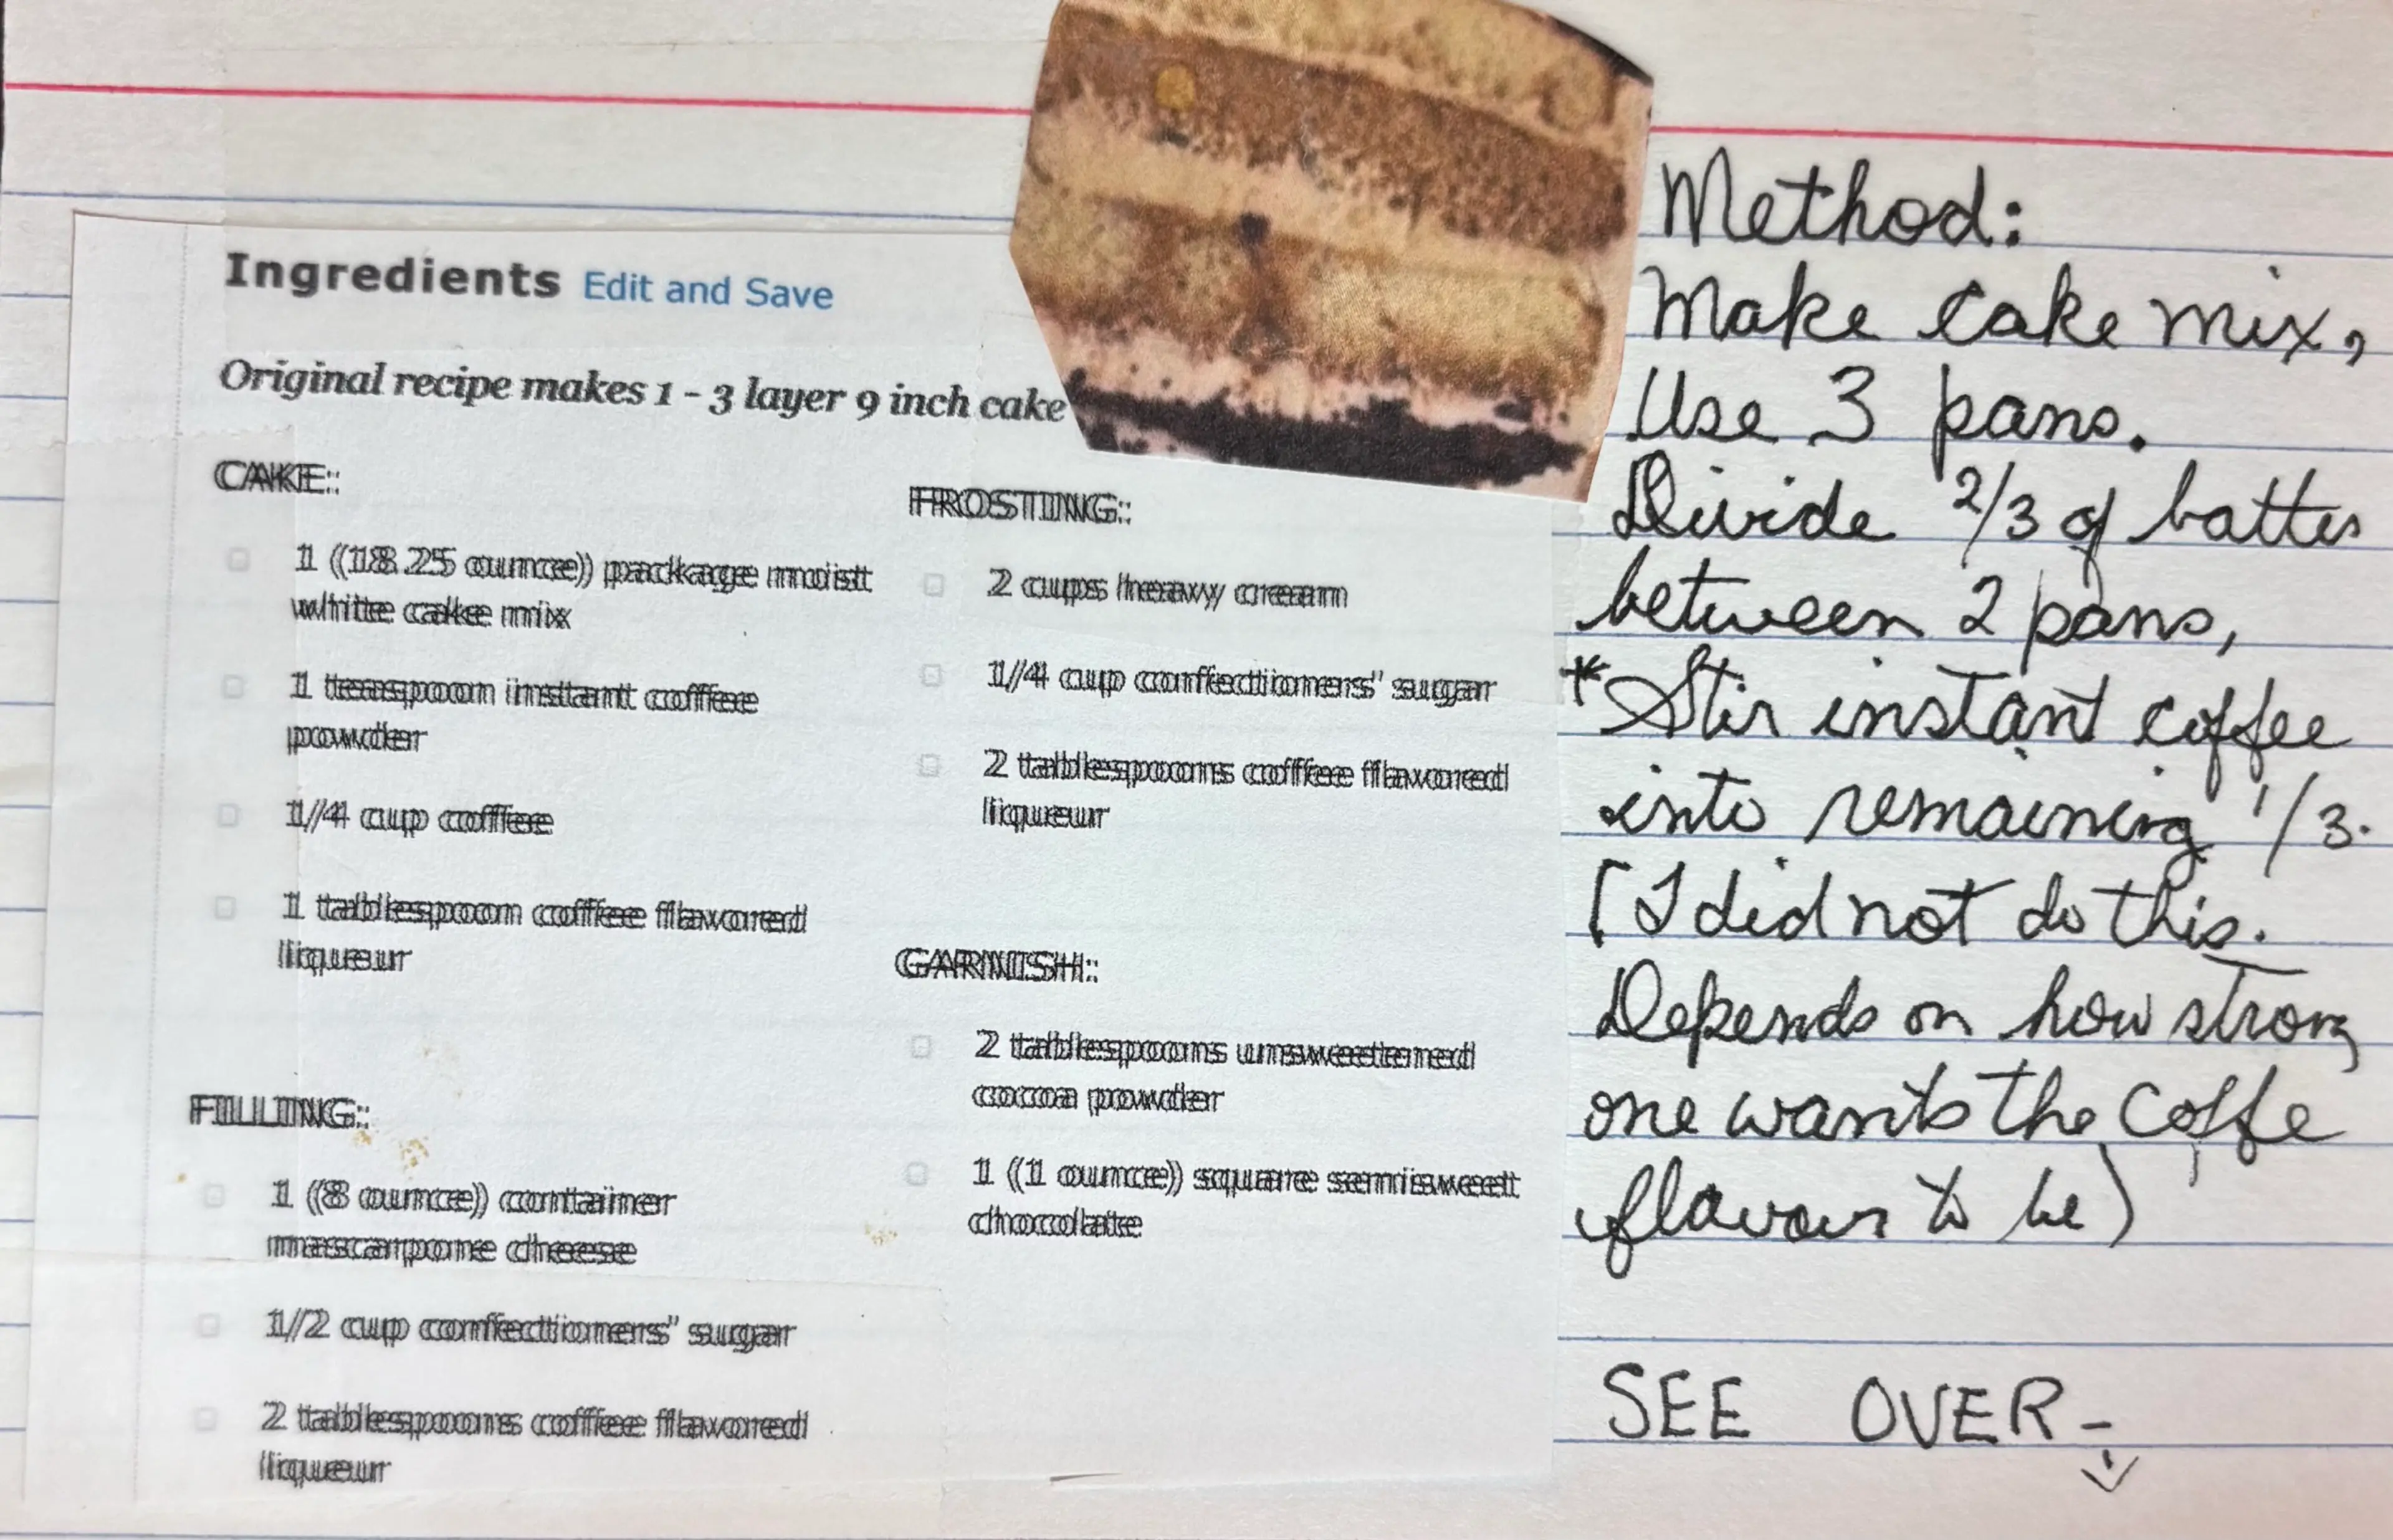 Ingredients Edit and Save
Original recipe makes 1 - 3 layer 9 inch cake
CAKE:
1 (18.25 ounce) package moist
white cake mix
1 teaspoon instant coffee
powder
1/4 cup coffee
1 tablespoon coffee flavored
liqueur
FILLING:
1 (8 ounce) container
mascarpone cheese
1/2 cup confectioners' sugar
2 tablespoons coffee flavored
liqueur
FROSTING:
2 cups heavy cream
1/4 cup confectioners' sugar
2 tablespoons coffee flavored
liqueur
GARNISH:
2 tablespoons unsweetened
cocoa powder
1 (1 ounce) square semisweet
chocolate
Method:
Make cake mix,
Use 3 pans.
Divide 2/3 of batter
between 2 pans,
*Stir instant coffee
into remaining 1/3.
[I did not do this.
Depends on how strong
one wants the Coffe
flavour to be)
SEE OVER -